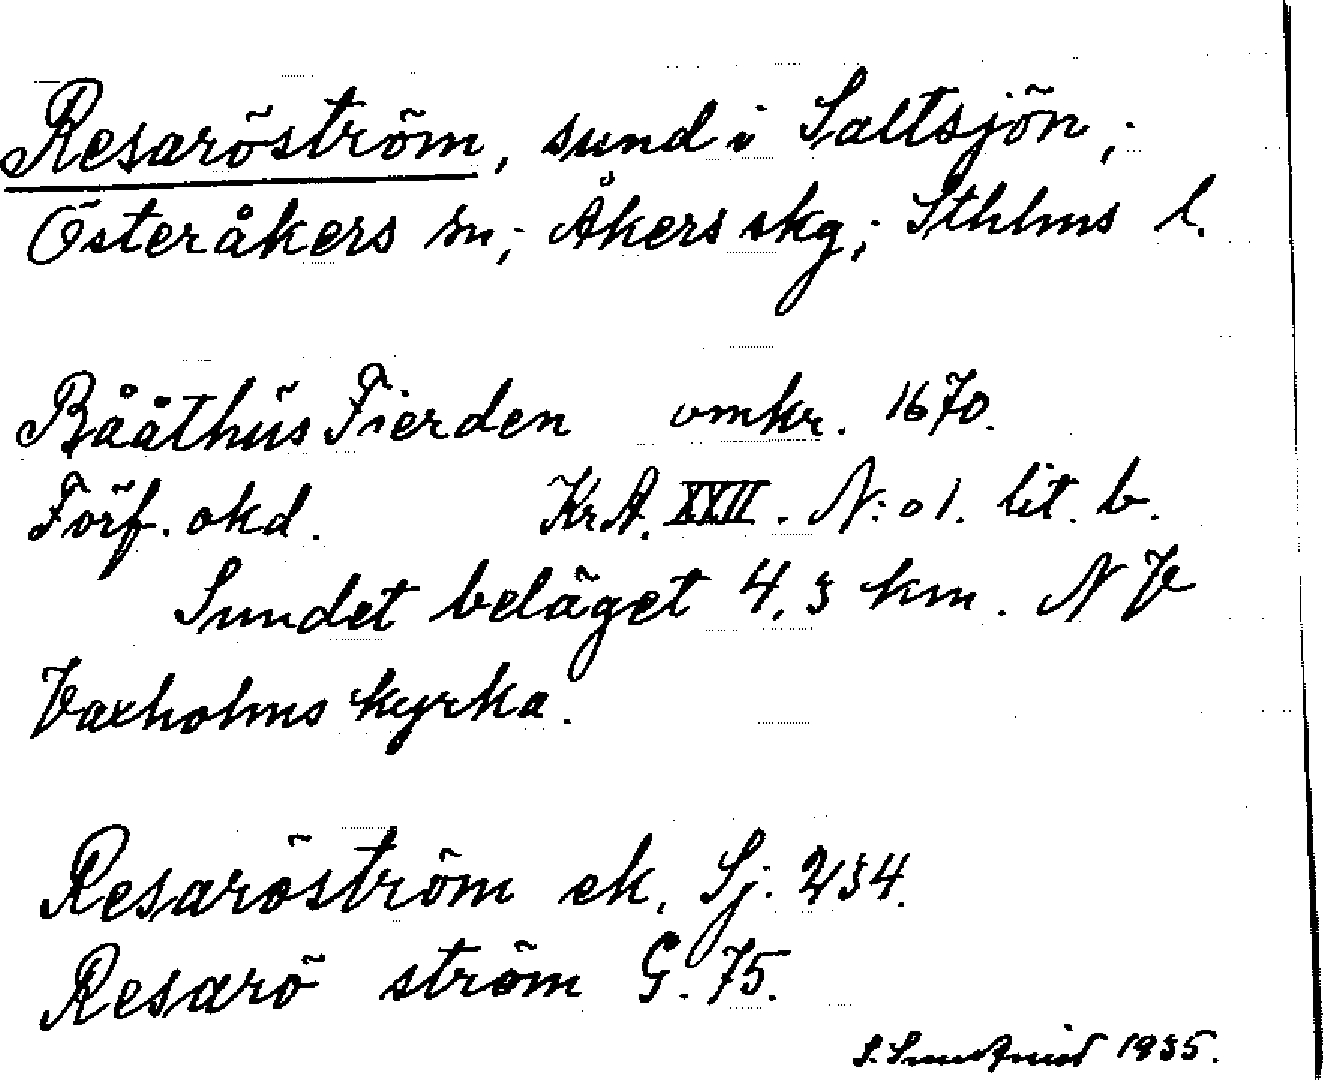 Resaröström, sund i Saltsjön,
Österåkers sn; Åkers skg; Sthlms l.
Bååthüs Fierden omkr. 1670.
Förf. okd. Kr.A. XXII. N:o 1. lit. b.
Sundet beläget 4,3 km. NV
Vaxholms kyrka.
Resaröström ek. Sj. 234.
Resarö ström G. 75.
1935.